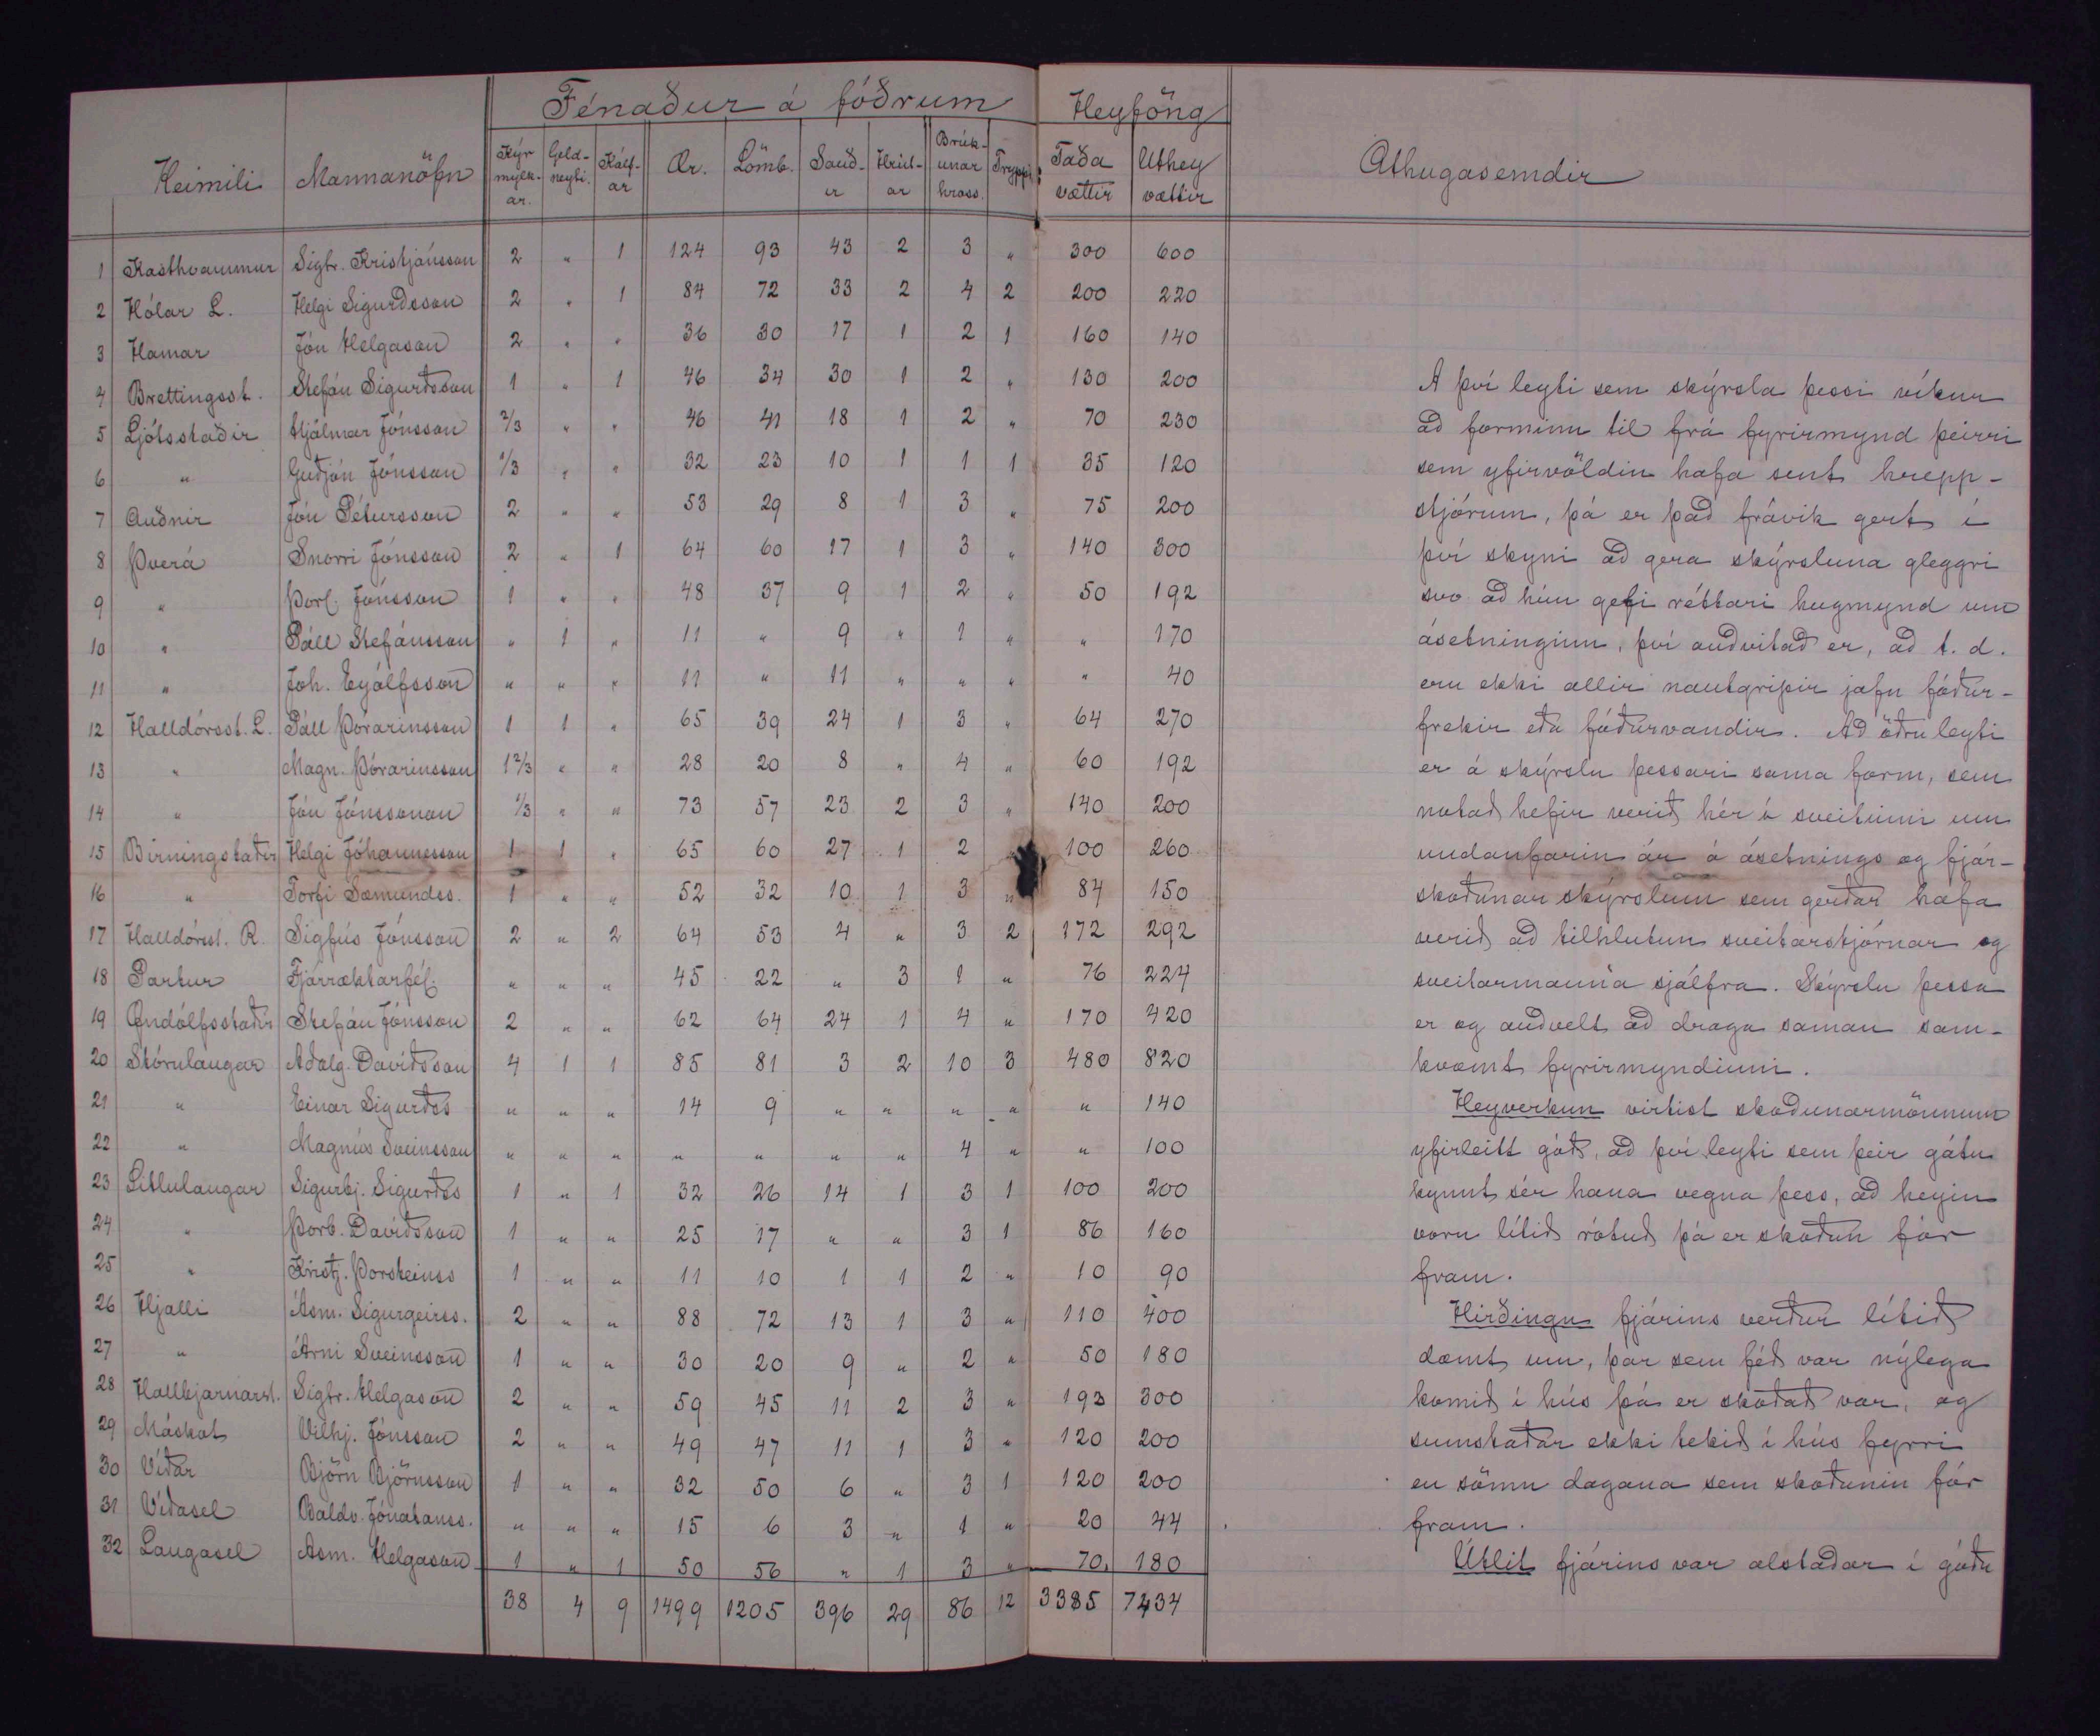 Fénaður á fóðrum Heyföng
Heimili Mannanöfn Kýr mjólk-ar. Geld-neyti. Kálf-ar Ær. Lömb. Sauð-ir Hrút-ar Brúk-unar hross. Tryppi Taða vættir Úthey vættir Athugasemdir
1 Kasthvammur Sigtr. Kristjánsson 2 " 1 124 93 43 2 3 " 300 600
2 Hólar L. Helgi Sigurðsson 2 " 1 84 72 33 2 4 2 200 220
3 Hamar Jón Helgason 2 " " 36 30 17 1 2 1 160 140
4 Brettingsst. Stefán Sigurðsson 1 " 1 46 34 30 1 2 " 130 200
5 Ljótsstaðir Hjálmar Jónsson 2/3 " " 46 41 18 1 2 " 70 230
6 " Guðjón Jónsson 1/3 " " 32 23 10 1 1 1 35 120
7 Auðnir Jón Pétursson 2 " " 53 29 8 1 3 " 75 200
8 Þverá Snorri Jónsson 2 " 1 64 60 17 1 3 " 140 300
9 " Þorl. Jónsson 1 " " 48 37 9 1 2 " 50 192
10 " Páll Stefánsson " 1 " 11 " 9 " 1 " " 170
11 " Joh. Eyólfsson " " " 11 " 11 " " " " 40
12 Halldórsst. L. Páll Þórarinsson 1 1 " 65 39 24 1 3 " 64 270
13 " Magn. Þórarinsson 1 2/3 " " 28 20 8 " 4 " 60 192
14 " Jón Jónssonan 1/3 " " 73 57 23 2 3 " 140 200
15 Birningstaðir Helgi Jóhannesson 1 1 " 65 60 27 1 2 100 260
16 " Torfi Sæmundss. 1 " " 52 32 10 1 3 " 84 150
17 Halldórsst. R. Sigfús Jónsson 2 " 2 64 53 4 " 3 2 172 292
18 Partur Fjárræktarfél. " " " 45 22 " 3 1 " 76 224
19 Öndólfsstaðir Stefán Jónsson 2 " " 62 64 24 1 4 " 170 420
20 Stórulaugar Aðalg. Davíðsson 4 1 1 85 81 3 2 10 3 480 820
21 " Einar Sigurðss " " " 14 9 " " " " " 140
22 " Magnús Sveinsson " " " " " " " 4 " " 100
23 Litlulaugar Sigurbj. Sigurðss 1 " 1 32 26 14 1 3 1 100 200
24 " Þorb. Davíðsson 1 " " 25 17 " " 3 1 86 160
25 " Kristj. Þorsteinss 1 " " 11 10 1 1 2 " 10 90
26 Hjalli Ásm. Sigurgeirss. 2 " " 88 72 13 1 3 " 110 400
27 " Árni Sveinsson 1 " " 30 20 9 " 2 " 50 180
28 Hallbjarnarst. Sigtr. Helgason 2 " " 59 45 11 2 3 " 193 300
29 Máskot Vilhj. Jónsson 2 " " 49 47 11 1 3 " 120 200
30 Víðar Björn Björnsson 1 " " 32 50 6 " 3 1 120 200
31 Víðasel Baldv. Jónatanss. " " " 15 6 3 " 1 " 20 44
32 Laugasel Ásm. Helgason 1 " 1 50 56 " 1 3 " 70 180
38 4 9 1499 1205 396 29 86 12 3385 7434
A því leyti sem skýrsla þessi víkur
að forminu til frá fyrirmynd þeirri
sem yfirvöldin hafa sent hrepp-
stjórum, þá er það frávik gert í
því skyni að gera skýrsluna gleggri
svo að hún gefi réttari hugmynd um
ásetninginn, því auðvitað er, að t. d.
eru ekki allir nautgripir jafn fóður-
frekir eða fóðurvandir. Að öðru leyti
er á skýrslu þessari sama form, sem
notað hefir verið hér í sveitinni um
undanfarin ár á ásetnings og fjár-
skoðunar skýrslum sem gerðar hafa
verið að tilhlutun sveitarstjórnar og
sveitarmanna sjálfra. Skýrslu þessa
er og auðvelt að draga saman sam-
kvæmt fyrirmyndinni.
Heyverkun virtist skoðunarmönnum
yfirleitt góð, að því leyti sem þeir gátu
kynnt sér hana vegna þess, að heyin
voru lítið rótuð þá er skoðun fór
fram.
Hirðingu fjárins verður lítið
dæmt um, þar sem féð var nýlega
komið í hús þá er skoðað var, og
sumstaðar ekki tekið í hús fyrri
en sömu dagana sem skoðunin fór
fram.
Útlit fjárins var alstaðar í góðu